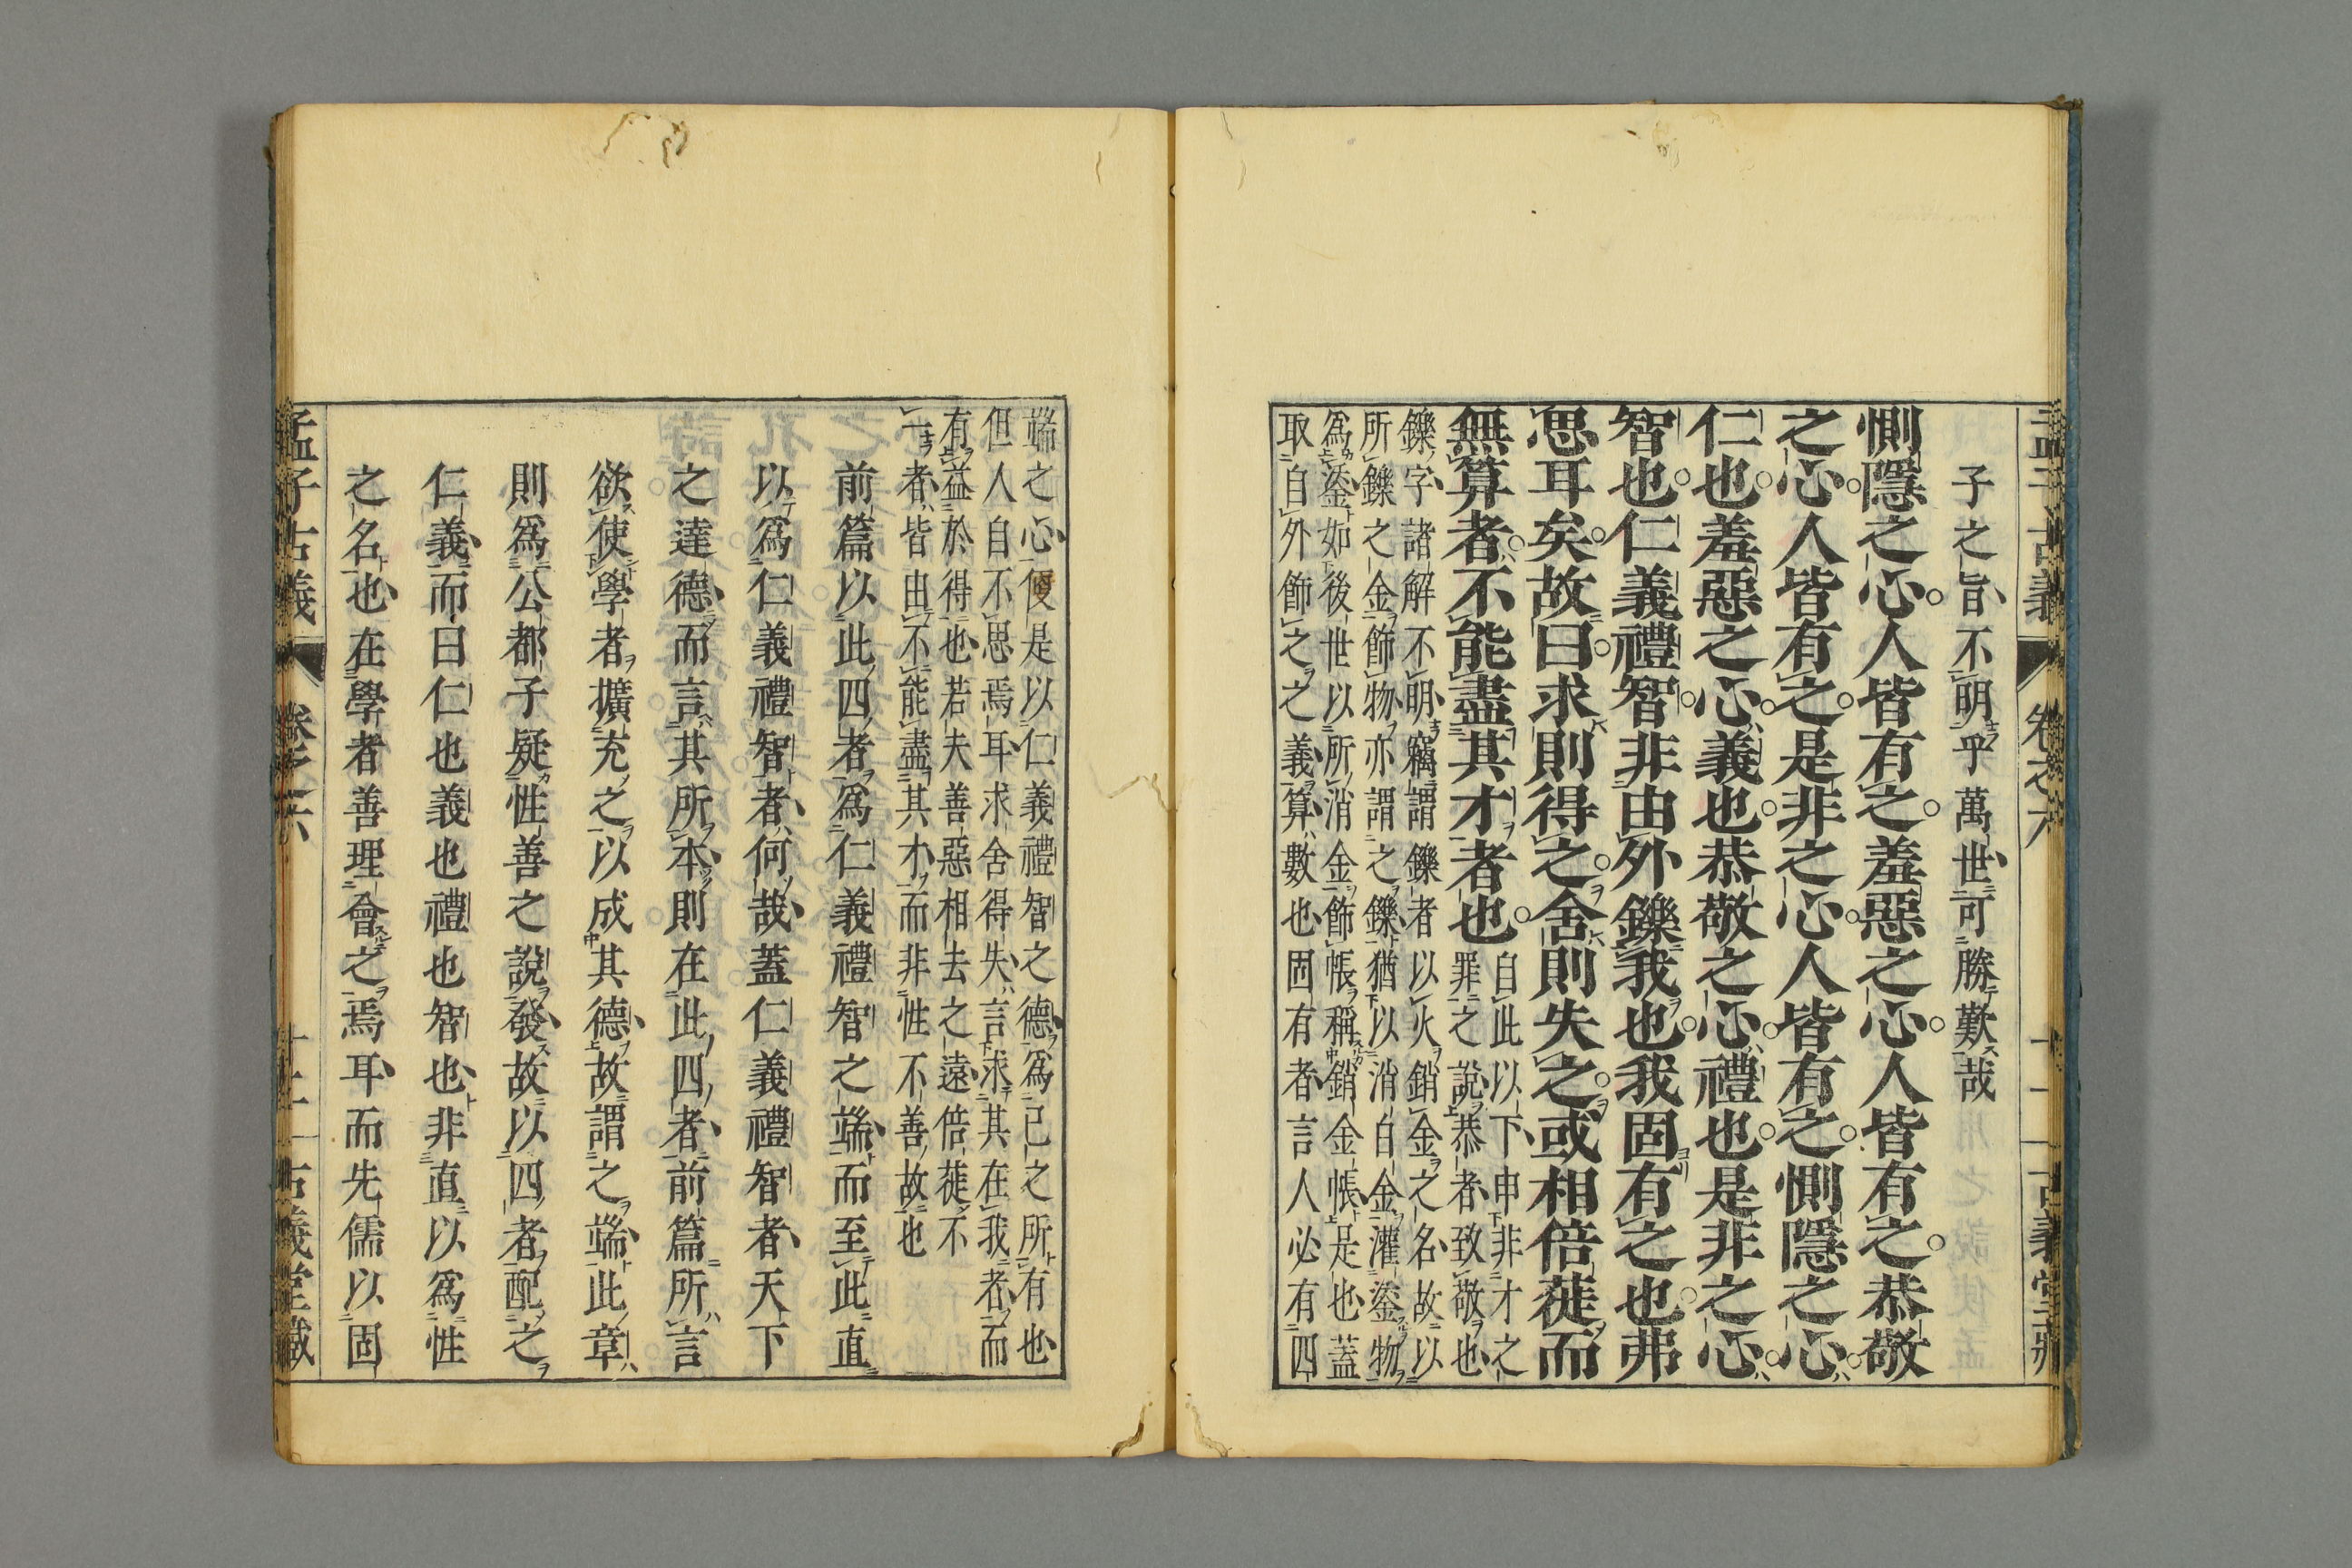 子之旨不明乎萬世可勝歎哉
惻隱之心人皆有之羞惡之心人皆有之恭敬
之心人皆有之是非之心人皆有之惻隱之心
仁也羞惡之心義也恭敬之心禮也是非之心
智也仁義禮智非由外鑠我也我固有之也弗
思耳矣故曰求則得之舍則失之或相倍蓰而
無算者不能盡其才者也
自此以下申非才之
罪之說恭者致敬也
鑠字諸解不明竊謂鑠者以火銷金之名故以
所鑠之金飾物亦謂之鑠猶以消白金灌鋈物
爲鋈如後世以所消金飾帳稱銷金帳是也蓋
取自外飾之之義算數也固有者言人必有四
端之心便是以仁義禮智之德爲已之所有也
但人自不思焉耳求舍得失言求其在我者而
有益於得也若夫善惡相去之遠倍蓰不
一者皆由不能盡其才而非性不善故也
前篇以此四者爲仁義禮智之端而至此直
以爲仁義禮智者何哉蓋仁義禮智者天下
之達德而言其所本則在此四者前篇所言
欲使學者擴充之以成其德故謂之端此章
則爲公都子疑性善之說發故以四者配之
仁義而曰仁也義也禮也智也非直以爲性
之名也在學者善理會之焉耳而先儒以固
孟子古義 卷之六 古義堂藏